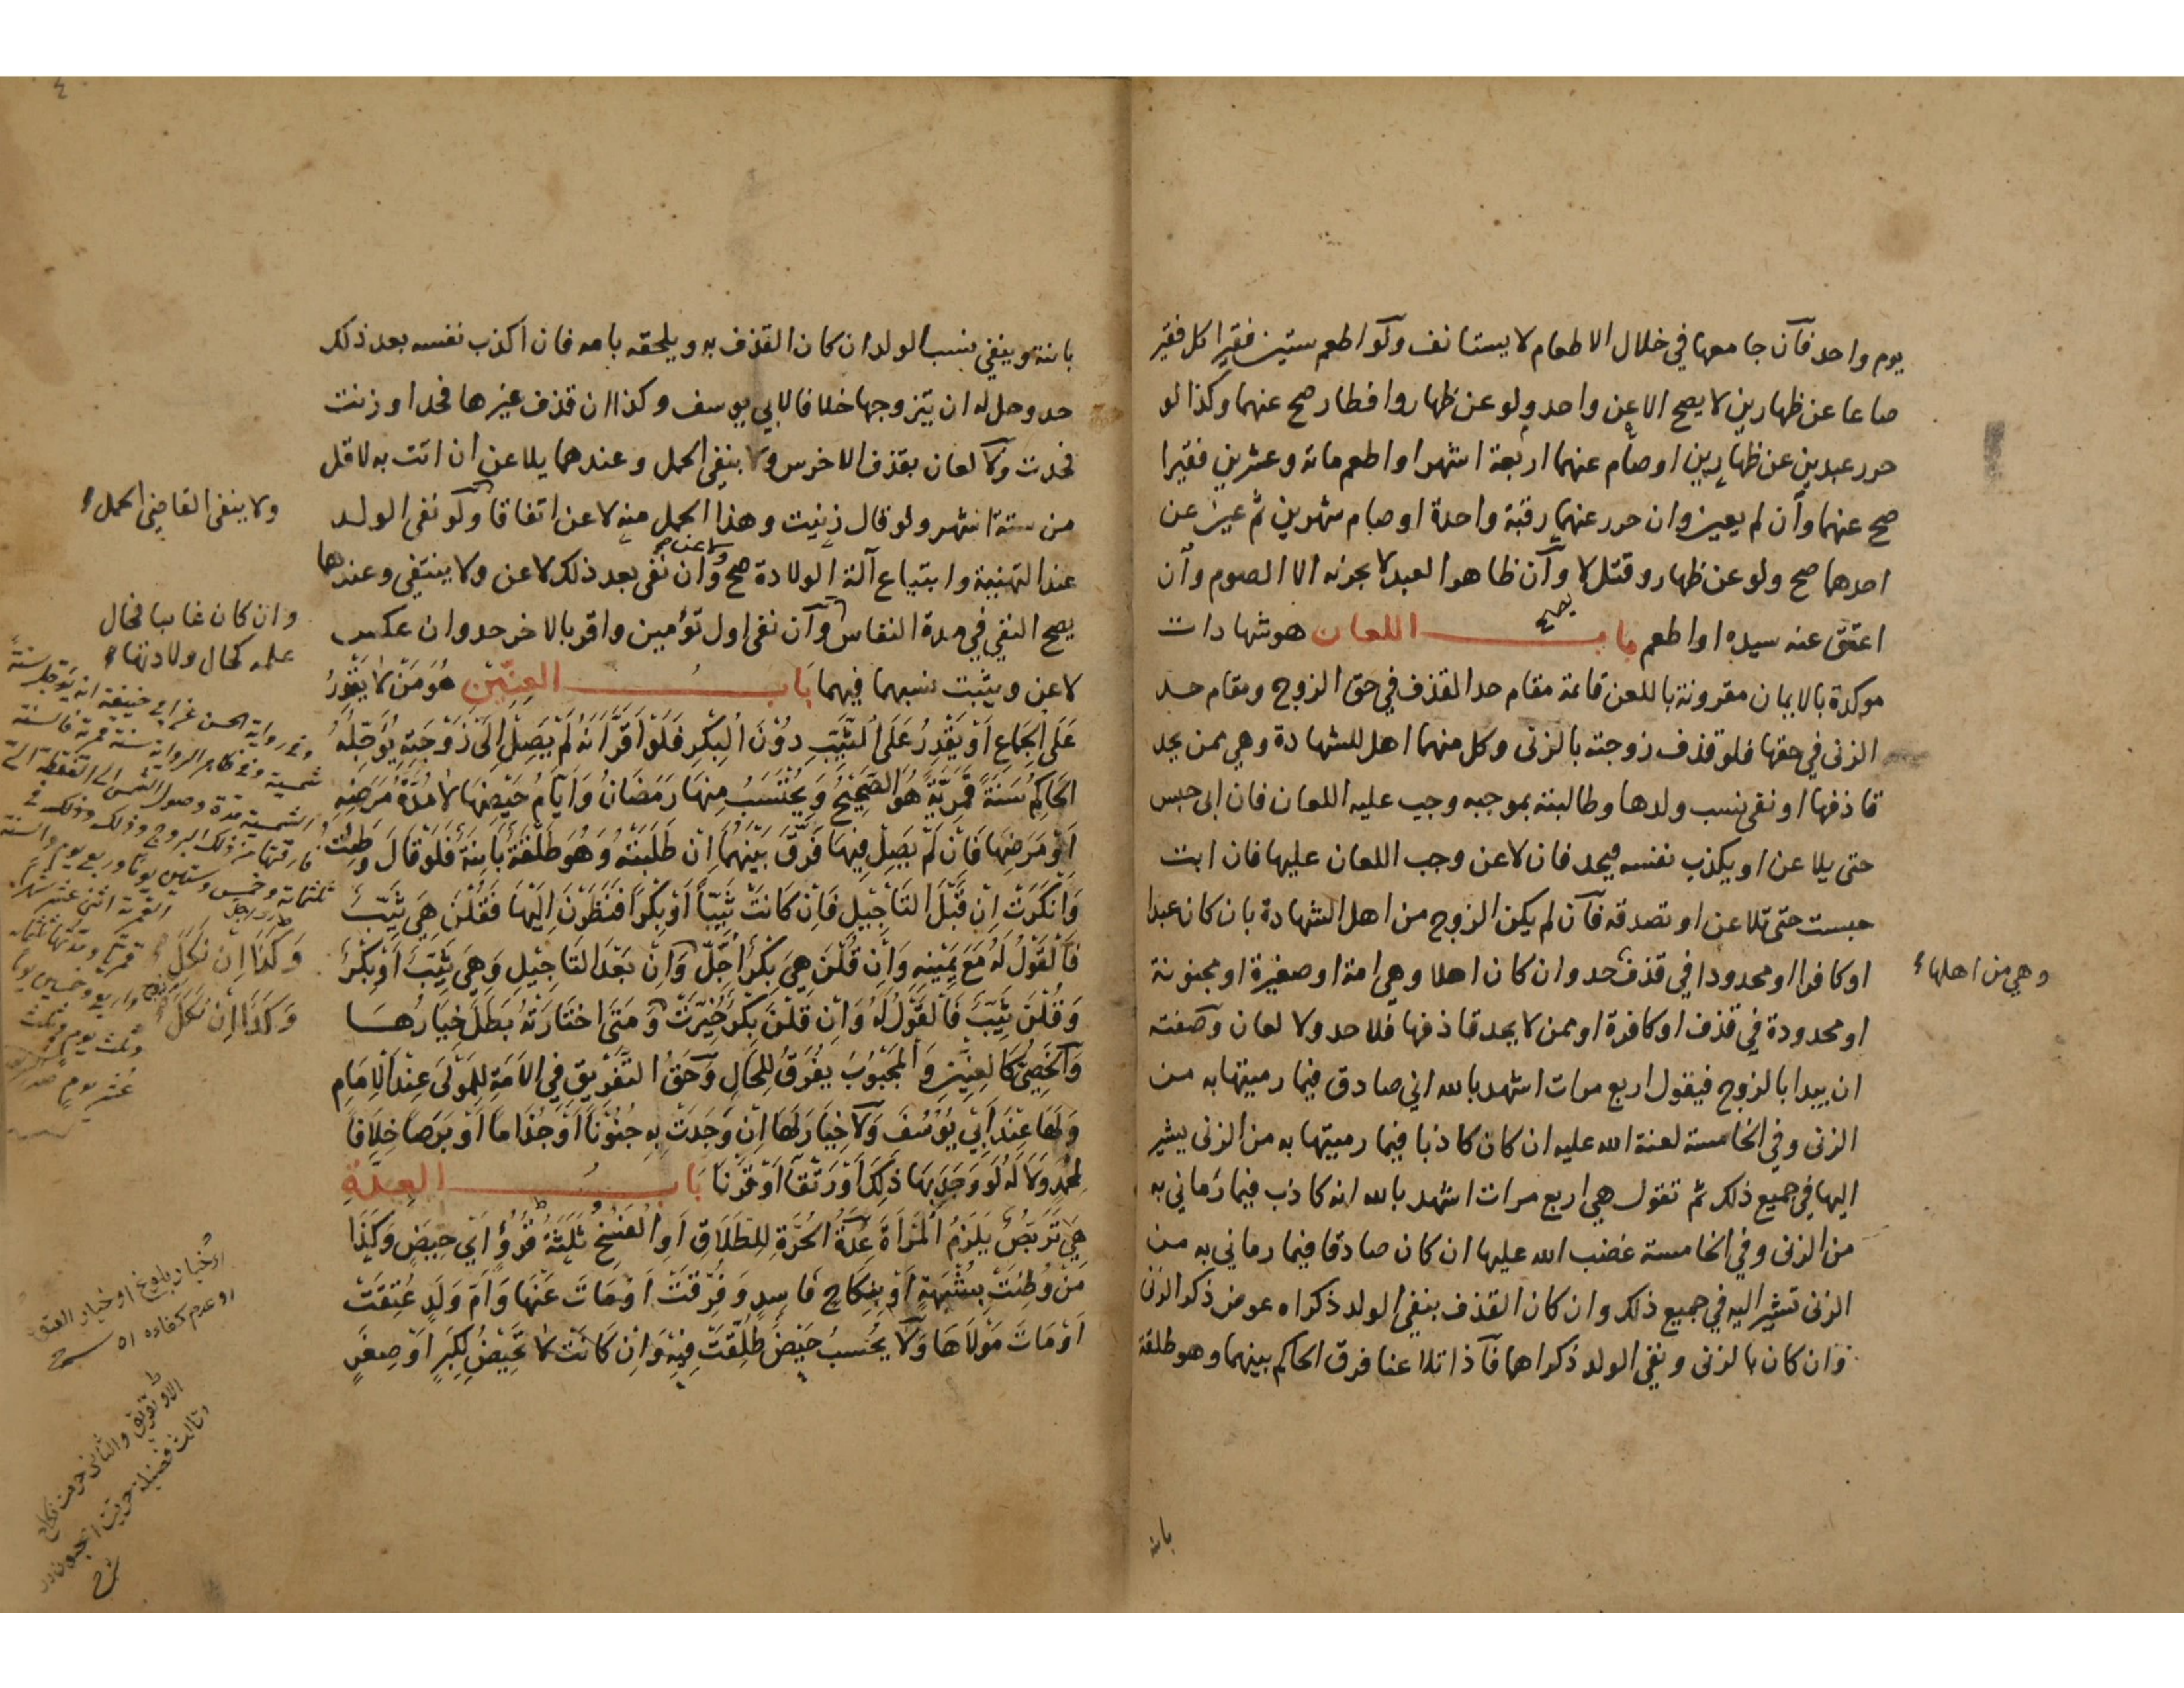 يوم واحد فآن جامعها في خلال الاطعام لا يستانف ولو اطعم ستين فقيرا كل فقير
صاعا عن ظهارين لا يصح الا عن واحد ولو عن ظهار وافطار صح عنهما وكذا لو
حرر عبدين عن ظهارين او صام عنهما اربعة اشهر او اطعم مائة وعشرين فقيرا
صح عنهما وآن لم يعين وان حرر عنهما رقبة واحدة او صام شهرين ثم عين عن
احدهما صح ولو عن ظهار وقتل لا وآن ظاهر العبد لا يجزئه الا الصوم وآن
اعتق عنه سيده او اطعم باب اللعان هو شهادات
موكدة بالايمان مقرونة باللعن قائمة مقام حد القذف في حق الزوج ومقام حد
الزنى في حقها فلو قذف زوجته بالزنى وكل منهما اهل للشهادة وهي ممن يحد
قاذفها او نفى نسب ولدها وطالبته بموجبه وجب عليه اللعان فان ابى حبس
حتى يلاعن او يكذب نفسه فيحد فان لاعن وجب اللعان عليها فان ابت
حبست حتى تلاعن او تصدقه فآن لم يكن الزوج من اهل الشهادة بان كان عبدا
او كافرا او محدودا في قذف حد وان كان اهلا وهي امة او صغيرة او مجنونة
وهي من اهلها
او محدودة في قذف او كافرة او ممن لا يحد قاذفها فلا حد ولا لعان وصفته
ان يبدا بالزوج فيقول اربع مرات اشهد بالله اني صادق فيما رميتها به من
الزنى وفي الخامسة لعنة الله عليه ان كان كاذبا فيما رميتها به من الزنى يشير
اليها في جميع ذلك ثم تقول هي اربع مرات اشهد بالله انه كاذب فيما رماني به
من الزنى وفي الخامسة غضب الله عليها ان كان صادقا فيما رماني به من
الزنى تشير اليه في جميع ذلك وان كان القذف بنفي الولد ذكراه عوض ذكر الزنى
وان كان بالزنى ونفي الولد ذكراهما فآذا تلاعنا فرق الحاكم بينهما وهو طلقة
بائنة وينفي نسب الولد ان كان القذف به ويلحقه بامه فان اكذب نفسه بعد ذلك
حد وحل له ان يتزوجها خلافا لابي يوسف وكذا ان قذف غيرها فحد او زنت
فحدت ولا لعان بقذف الاخرس ولا بنفي الحمل وعندهما يلاعن ان اتت به لاقل
من ستة اشهر ولو قال زنيت وهذا الحمل منه لاعن اتفاقا ولو نفى الولد
ولا ينفى القاضي الحمل
عند التهنية وابتياع آلة الولادة صح ولاعن وان نفى بعد ذلك لاعن ولا ينتفي وعندهما
يصح النفي في مدة النفاس وآن نفى اول توأمين واقر بالاخر حد وان عكس
وان كان غائبا فحال
علمه كحال ولادتها
لاعن ويثبت نسبهما فيهما بَابُ العِنّينِ هُوَ مَنْ لَا يَقْدِرُ
عَلَى الجِمَاعِ اَوْ يَقْدِرُ عَلَى الثَّيِّبِ دُوْنَ البِكْرِ فَلَوْ اَقَرَّ اَنَّهُ لَمْ يَصِلْ اِلَى زَوْجَتِهِ يُؤَجِّلُهُ
الحَاكِمُ سَنَةً قَمَرِيَّةً هُوَ الصَّحِيْحُ وَيُحْتَسَبُ مِنْهَا رَمَضَانُ وَاَيَّامُ حَيْضِهَا لَا مُدَّةُ مَرَضِهِ
اَوْ مَرَضِهَا فَاِنْ لَمْ يَصِلْ فِيهَا فَرَّقَ بَيْنَهُمَا اِنْ طَلَبَتْهُ وَهُوَ طَلْقَةٌ بَائِنَةٌ فَلَوْ قَالَ وَطِئْتُ
وَاَنْكَرَتْ اِنْ قَبْلَ التَّاجِيْلِ فَاِنْ كَانَتْ ثَيِّبًا اَوْ بِكْرًا فَنَظَرْنَ اِلَيْهَا فَقُلْنَ هِيَ ثَيِّبٌ
فَالْقَوْلُ لَهُ مَعَ يَمِيْنِهِ وَاِنْ قُلْنَ هِيَ بِكْرٌ اُجِّلَ وَاِنْ بَعْدَ التَّاجِيْلِ وَهِيَ ثَيِّبٌ اَوْ بِكْرٌ
وَكَذَا اِنْ نَكَلَ
وَقُلْنَ ثَيِّبٌ فَالْقَوْلُ لَهُ وَاِنْ قُلْنَ بِكْرٌ خُيِّرَتْ وَمَتَى اخْتَارَتْهُ بَطَلَ خِيَارُهَا
وَكَذَا اِنْ نَكَلَ
وَالخَصِيُّ كَالعِنِّيْنِ وَالمَجْبُوْبُ يُفَرَّقُ لِلْحَالِ وَحَقُّ التَّفْرِيْقِ فِي الاَمَةِ لِلْمَوْلَى عِنْدَ الاِمَامِ
وَلَهَا عِنْدَ اَبِي يُوْسُفَ وَلَا خِيَارَ لَهَا اِنْ وَجَدَتْ بِهِ جُنُوْنًا اَوْ جُذَامًا اَوْ بَرَصًا خِلَافًا
لِمُحَمَّدٍ وَلَا لَهُ لَوْ وَجَدَ بِهَا ذَلِكَ اَوْ رَتْقًا اَوْ قَرْنًا بَابُ العِدَّةِ
هِيَ تَرَبُّصٌ يَلْزَمُ المَرْأَةَ عِدَّةُ الحُرَّةِ لِلطَّلَاقِ اَوِ الفَسْخِ ثَلَثَةُ قُرُوْءٍ اَيْ حِيَضٍ وَكَذَا
مَنْ وُطِئَتْ بِشُبْهَةٍ اَوْ بِنِكَاحٍ فَاسِدٍ وَفُرِّقَتْ اَوْ مَاتَ عَنْهَا وَاُمُّ وَلَدٍ عُتِقَتْ
اَوْ مَاتَ مَوْلَاهَا وَلَا يُحْسَبُ حَيْضٌ طُلِّقَتْ فِيْهِ وَاِنْ كَانَتْ لَا تَحِيْضُ لِكِبَرٍ اَوْ صِغَرٍ